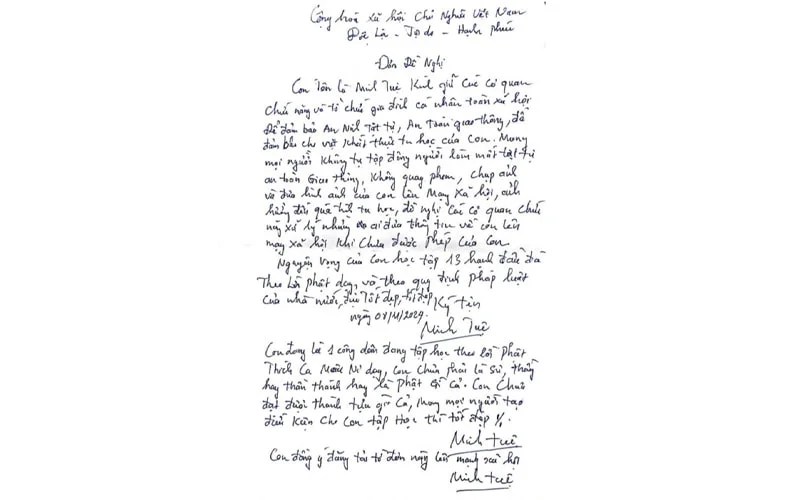 Cộng hoà xã hội Chủ Nghĩa Việt Nam
Độc Lập - Tự do - Hạnh phúc
Đơn Đề Nghị
Con Tên là Minh Tuệ Kính gửi Các cơ quan
Chức năng và tổ chức gia đình cá nhân toàn xã hội
Để đảm bảo An Ninh Tật tự, An Toàn giao thông, để
đảm bảo cho việc Khất thực tu học của Con. Mong
mọi người không tụ tập đông người làm mất trật tự
an toàn Giao thông, không quay phim, chụp ảnh
và đưa hình ảnh của con lên Mạng Xã hội, ảnh
hưởng đến quá trình tu học, đề nghị Các cơ quan chức
năng xử lý những ai đưa thông tin về con lên
mạng xã hội Khi Chưa được phép của Con
Nguyện vọng của Con học tập 13 hạnh đầu đà
Theo Lời Phật dạy, và theo quy định Pháp luật
Của nhà nước, Tốt đẹp, tốt đẹp
Ký Tên
ngày 08/11/2024.
Minh Tuệ
Con đang là 1 công dân đang tập học theo lời Phật
Thích Ca Mâu Ni dạy, con Chưa phải là Sư, thầy
hay thần thánh hay là Phật Gì Cả. Con Chưa
đạt được thành tựu gì Cả, Mong mọi người tạo
điều Kiện Cho Con tập Học thì tốt đẹp
Minh tuệ
Con đồng ý đăng tải tờ đơn này lên mạng xã hội
Minh tuệ